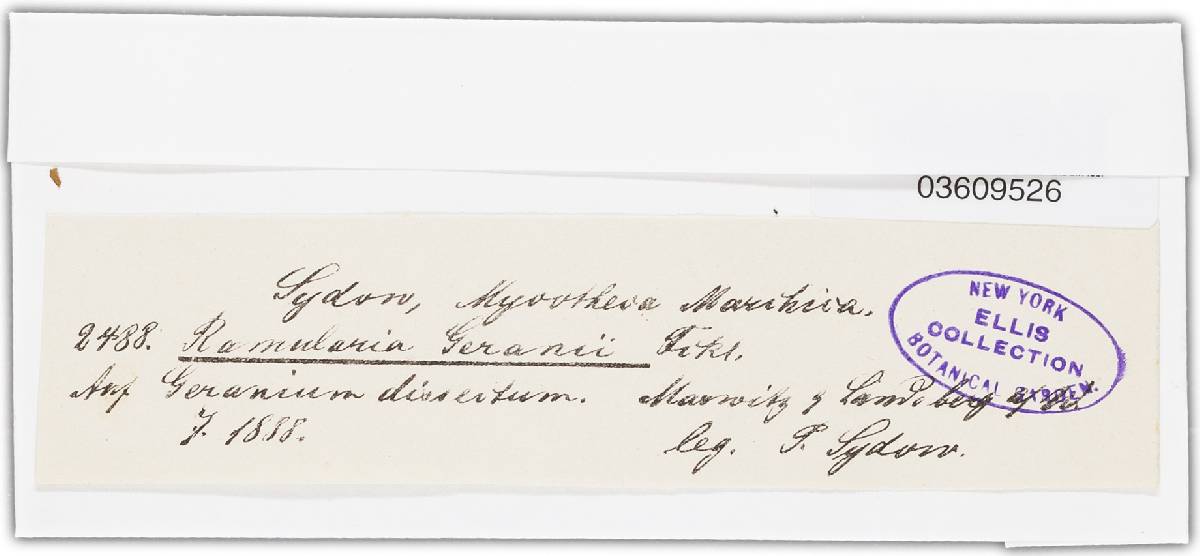 03609526
Sydow, Mycotheca Marchica.
2488. Ramularia Geranii Fckl.
Auf Geranium dissectum. Marwitz
7. 1888.
leg. P. Sydow.
NEW YORK
ELLIS
COLLECTION
BOTANICAL GARDEN.